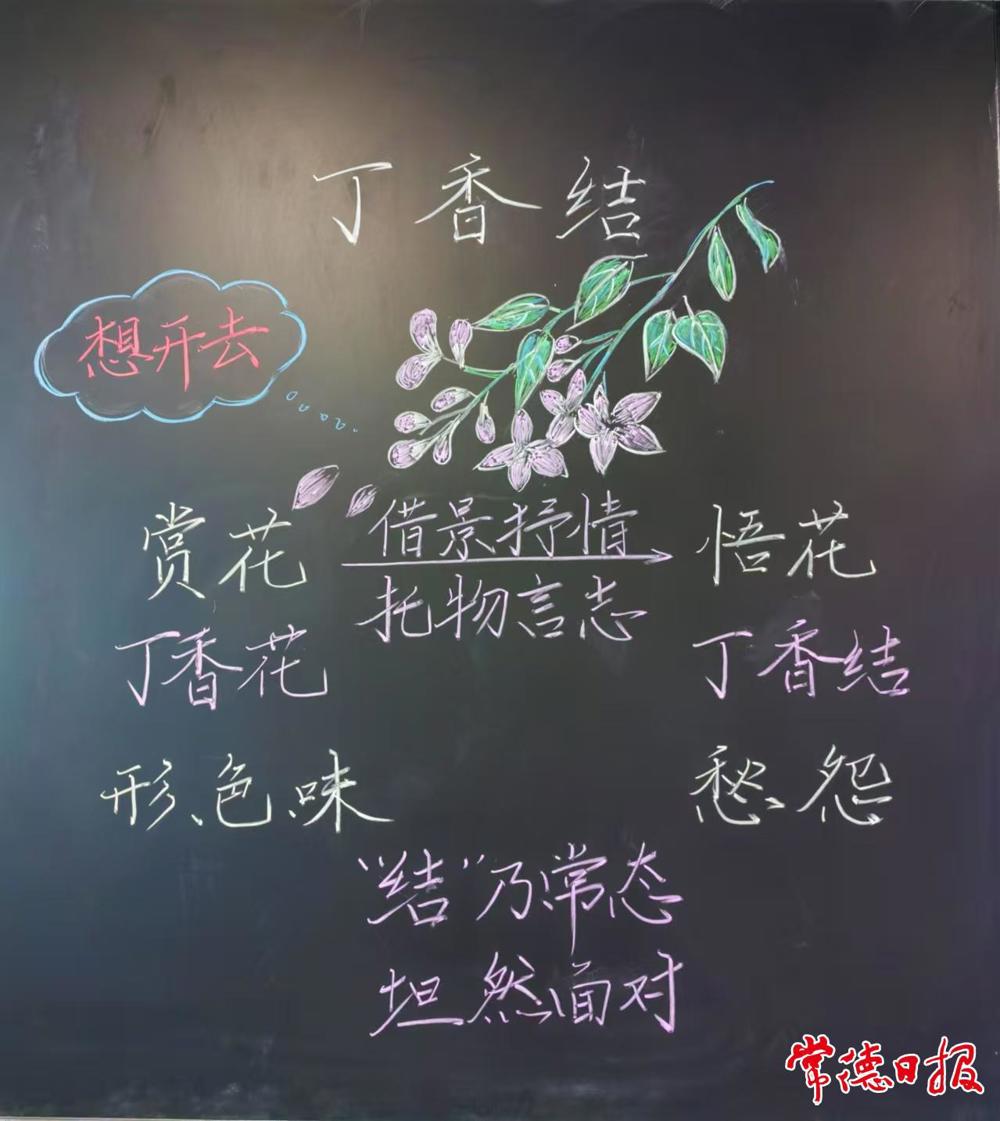 丁香结
想开去
赏花 借景抒情 悟花
托物言志
丁香花 丁香结
形、色、味 愁、怨
“结”乃常态
坦然面对
常德日报